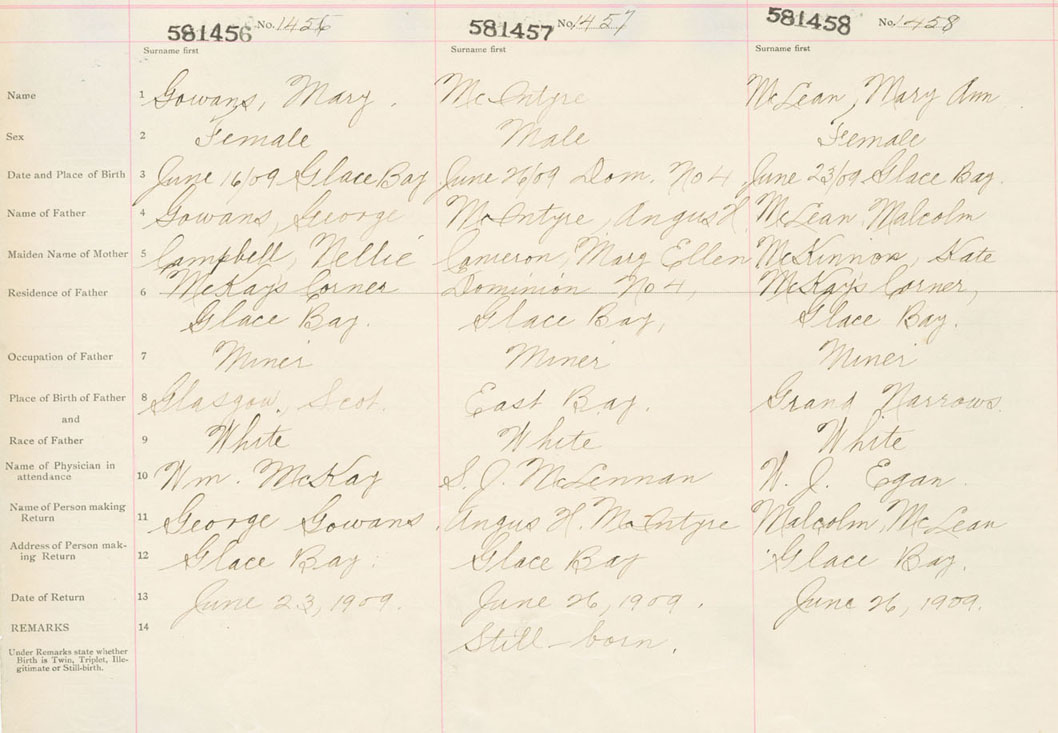 581456 No. 1456 581457 No. 1457 581458 No. 1458
Surname first Surname first Surname first
Name 1 Gowans, Mary. McIntyre McLean, Mary Ann
Sex 2 Female Male Female
Date and Place of Birth 3 June 16/09 Glace Bay June 26/09 Dom. No 4 June 23/09 Glace Bay.
Name of Father 4 Gowans, George McIntyre, Angus H. McLean, Malcolm
Maiden Name of Mother 5 Campbell, Nellie Cameron, Mary Ellen McKinnon, Kate
Residence of Father 6 McKay's Corner Dominion No 4, McKay's Corner,
Glace Bay. Glace Bay, Glace Bay.
Occupation of Father 7 Miner Miner Miner
Place of Birth of Father 8 Glasgow, Scot. East Bay. Grand Narrows.
and
Race of Father 9 White White White
Name of Physician in
attendance 10 Wm. McKay S. J. McLennan W. J. Egan.
Name of Person making
Return 11 George Gowans. Angus H. McIntyre Malcolm McLean
Address of Person mak-
ing Return 12 Glace Bay. Glace Bay Glace Bay.
Date of Return 13 June 23, 1909. June 26, 1909. June 26, 1909.
REMARKS 14 Still-born.
Under Remarks state whether
Birth is Twin, Triplet, Ille-
gitimate or Still-birth.